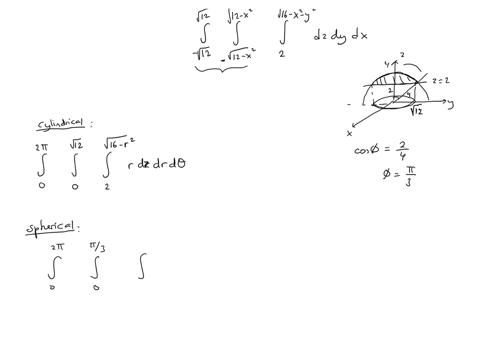 ∫_{-√12}^{√12} ∫_{-√12-x²}^{√12-x²} ∫_{2}^{√16-x²-y²} dz dy dx
z
4
z=2
2
4
y
√12
x
cylindrical:
∫_{0}^{2π} ∫_{0}^{√12} ∫_{2}^{√16-r²} r dz dr dθ
cosφ = 2/4
φ = π/3
spherical:
∫_{0}^{2π} ∫_{0}^{π/3} ∫